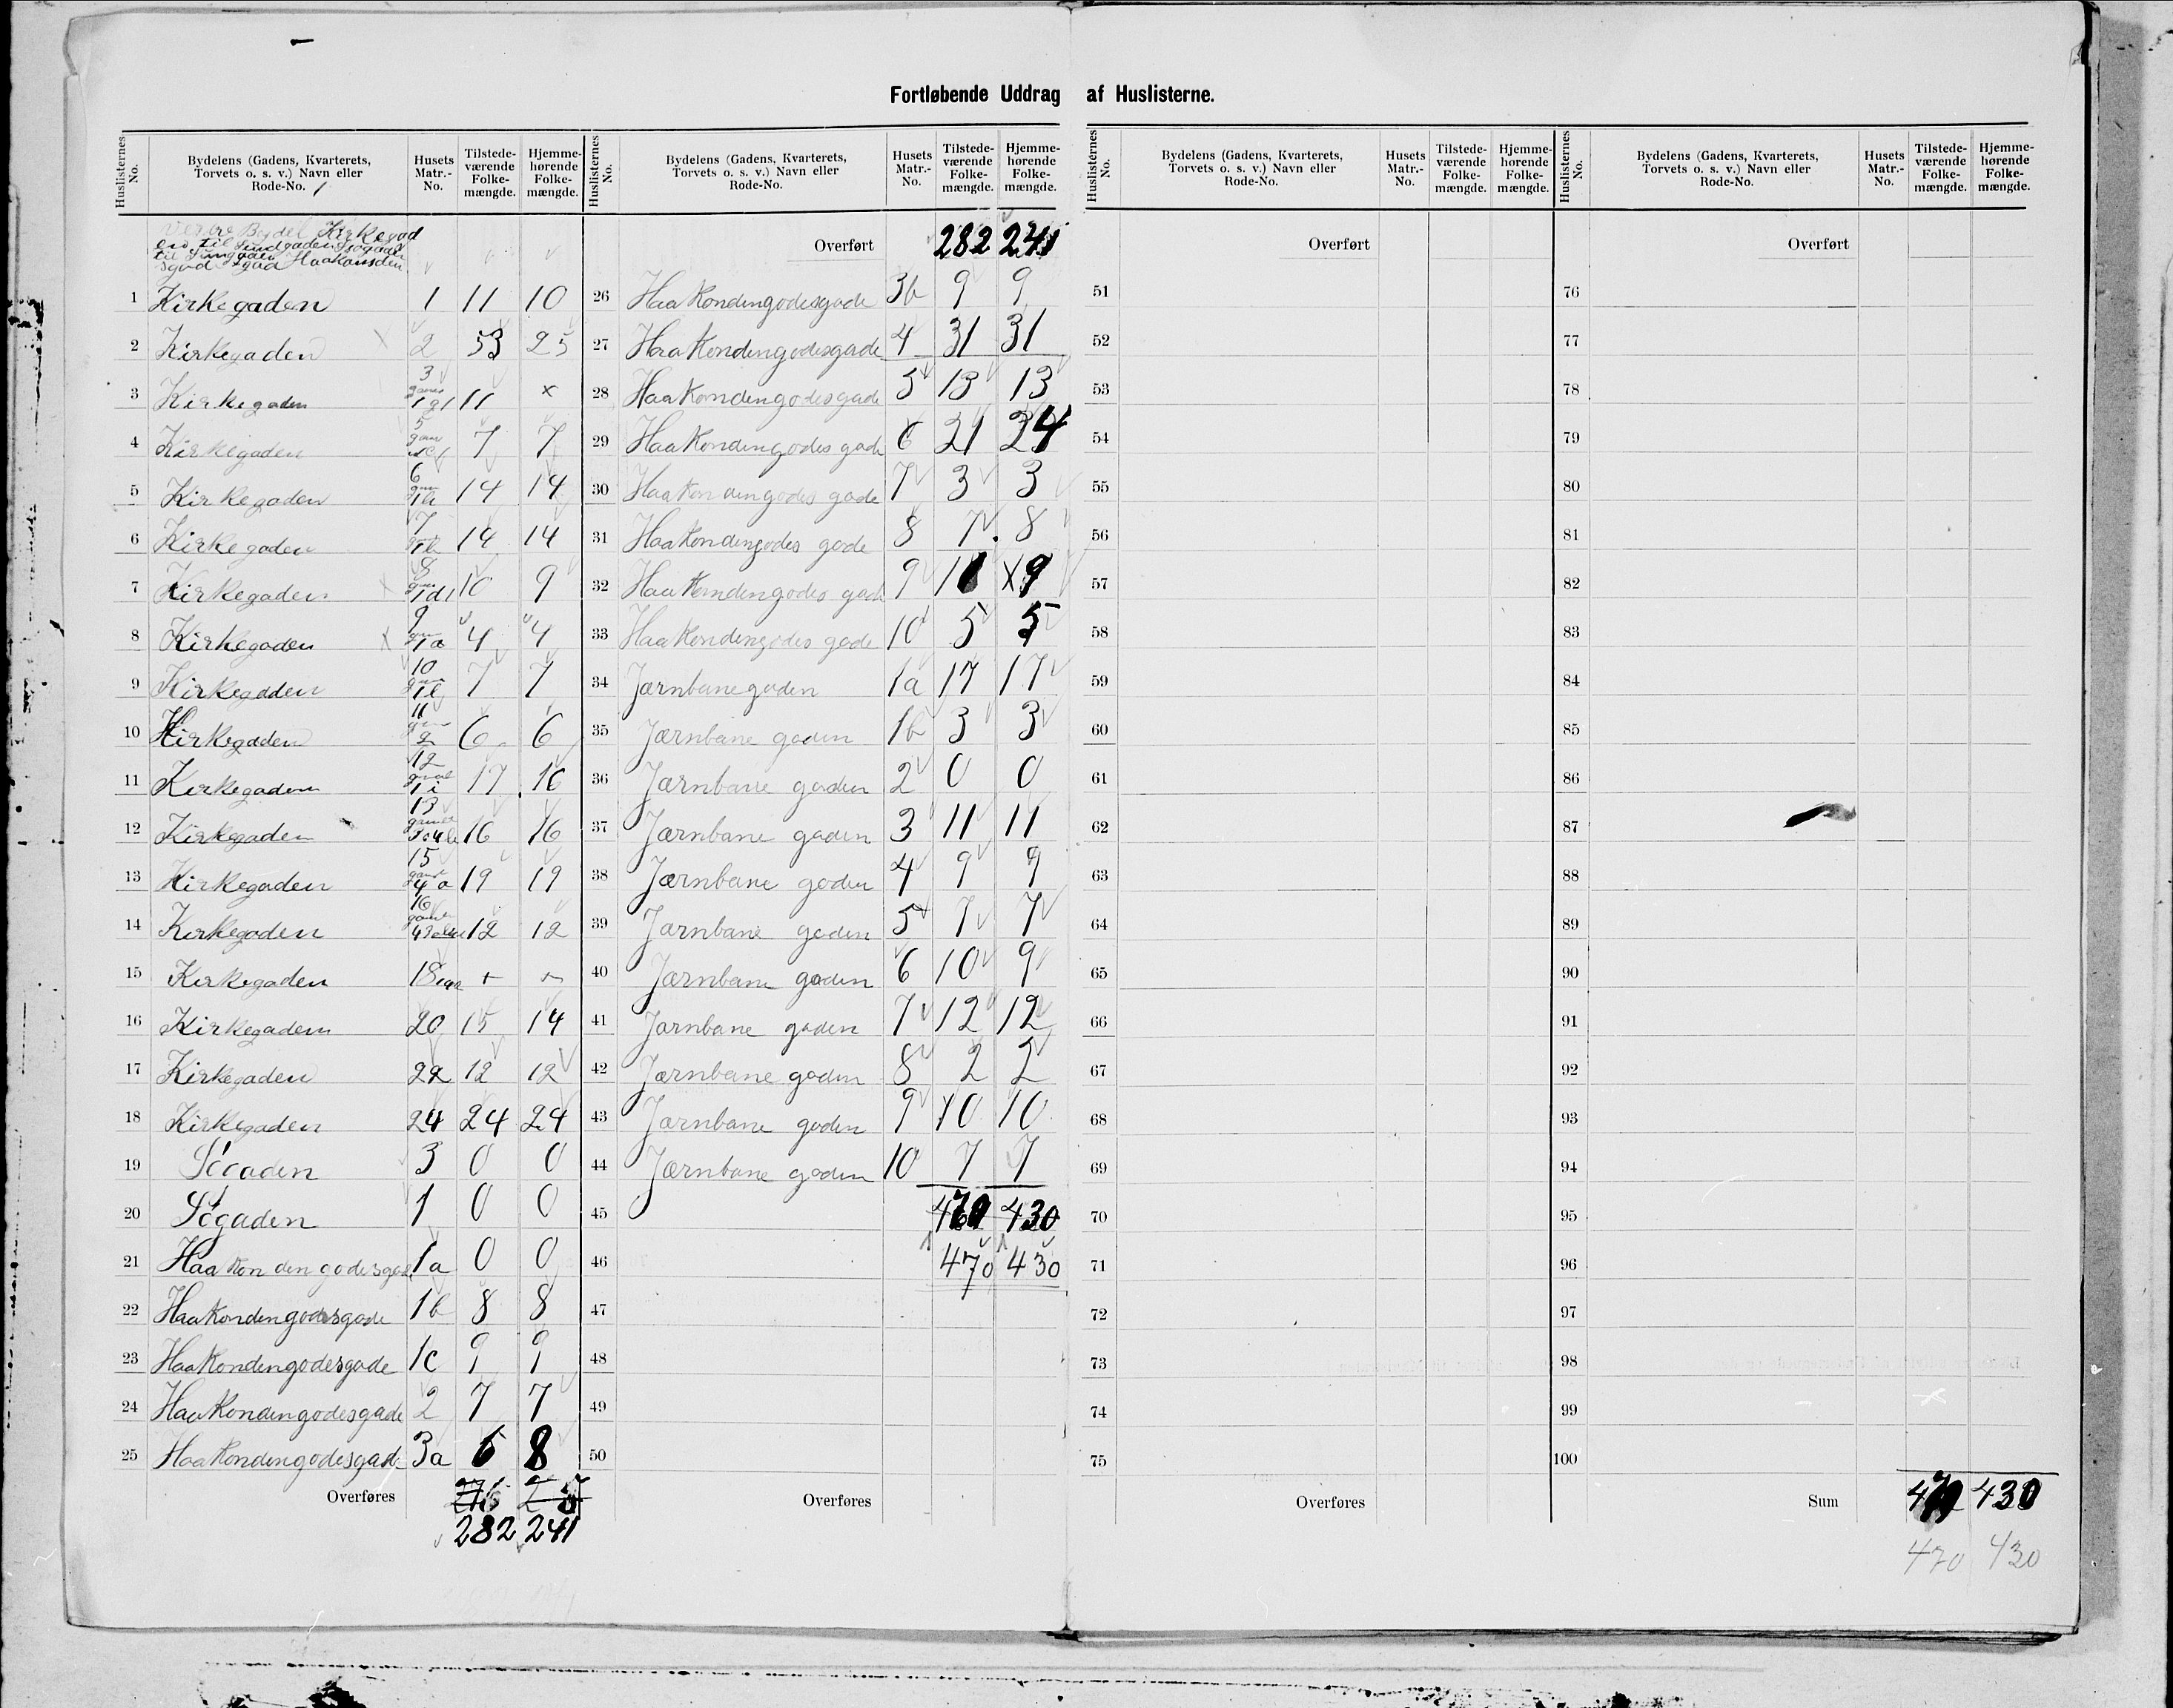 Fortløbende Uddrag af Huslisterne.
Huslisternes No. | Bydelens (Gadens, Kvarterets, Torvets o. s. v.) Navn eller Rode-No. 1 | Husets Matr.-No. | Tilstede-værende Folke-mængde. | Hjemme-hørende Folke-mængde.
Bydel Kirkegad
en til
til
1 Kirkegaden 1 11 10
2 Kirkegaden 2 53 25
3 Kirkegaden 3 11 x
4 Kirkegaden 5 7 7
5 Kirkegaden 6 14 14
6 Kirkegaden 7 14 14
7 Kirkegaden 8 10 9
8 Kirkegaden 9 4 4
9 Kirkegaden 10 7 7
10 Kirkegaden 11 6 6
11 Kirkegaden 12 17 16
12 Kirkegaden 13 16 16
13 Kirkegaden 15 19 19
14 Kirkegaden 16 12 12
15 Kirkegaden 18
16 Kirkegaden 20 15 14
17 Kirkegaden 22 12 12
18 Kirkegaden 24 24 24
19 Søgaden 3 0 0
20 Søgaden 1 0 0
21 Haakon den godesgad 1a 0 0
22 Haakondengodesgade 1b 8 8
23 Haakondengodesgade 1c 9 9
24 Haakondengodesgade 2 7 7
25 Haakondengodesgad 3a 6 8
Overføres 276
282 241
Huslisternes No. | Bydelens (Gadens, Kvarterets, Torvets o. s. v.) Navn eller Rode-No. | Husets Matr.-No. | Tilstede-værende Folke-mængde. | Hjemme-hørende Folke-mængde.
Overført 282 241
26 Haakondengodesgade 3b 9 9
27 Haakondengodesgade 4 31 31
28 Haakondengodesgade 5 13 13
29 Haakondengodes gade 6 21 24
30 Haakondengodes gade 7 3 3
31 Haakondengodes gade 8 7 8
32 Haakondengodes gad 9 x9
33 Haakondengodes gade 10 5 5
34 Jærnbanegaden 1a 17 17
35 Jærnbane gaden 1b 3 3
36 Jærnbane gaden 2 0 0
37 Jærnbane gaden 3 11 11
38 Jærnbane gaden 4 9 9
39 Jærnbane gaden 5 7 7
40 Jærnbane gaden 6 10 9
41 Jærnbane gaden 7 12 12
42 Jærnbane gaden 8 2 2
43 Jærnbane gaden 9 10 10
44 Jærnbane gaden 10 7 7
45 430
46 470 430
47
48
49
50
Overføres
Huslisternes No. | Bydelens (Gadens, Kvarterets, Torvets o. s. v.) Navn eller Rode-No. | Husets Matr.-No. | Tilstede-værende Folke-mængde. | Hjemme-hørende Folke-mængde.
Overført
51
52
53
54
55
56
57
58
59
60
61
62
63
64
65
66
67
68
69
70
71
72
73
74
75
Overføres
Huslisternes No. | Bydelens (Gadens, Kvarterets, Torvets o. s. v.) Navn eller Rode-No. | Husets Matr.-No. | Tilstede-værende Folke-mængde. | Hjemme-hørende Folke-mængde.
Overført
76
77
78
79
80
81
82
83
84
85
86
87
88
89
90
91
92
93
94
95
96
97
98
99
100
Sum 430
470 430